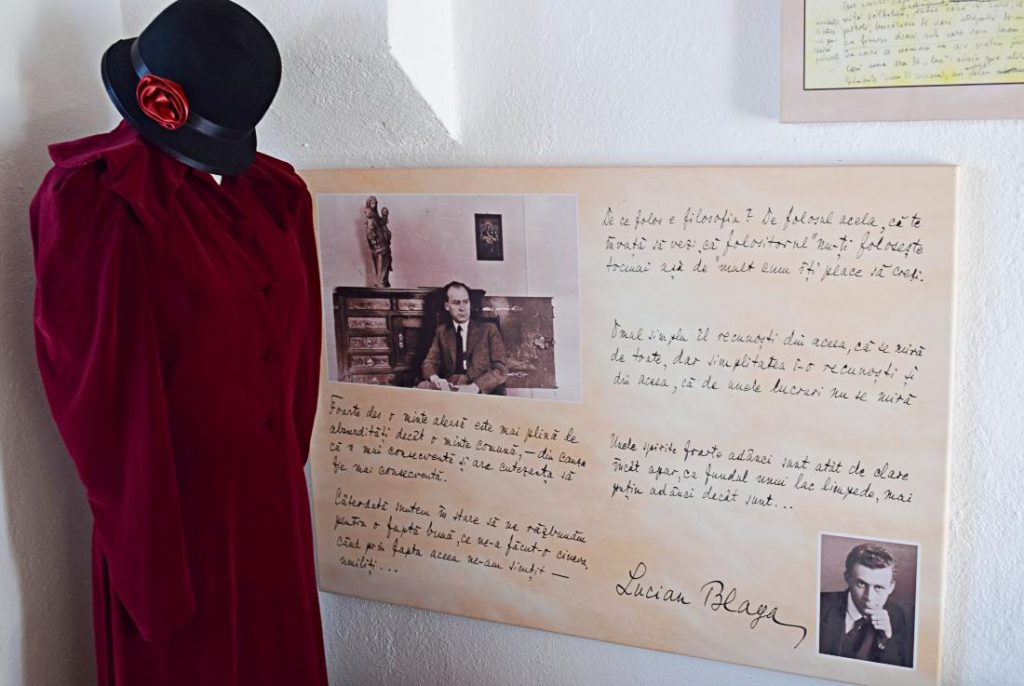 De ce folos e filosofia? De folosul acela, că te
învață să vezi, că „folositorul" nu-ți folosește
tocmai așa de mult cum îți place să crezi.
Omul simplu îl recunoști din aceea, că se miră
de toate, dar simplitatea i-o recunoști și
din aceea, că de unele lucruri nu se miră
Unele spirite foarte adânci sunt atât de clare
încât apar, ca fundul unui lac limpede, mai
puțin adânci decât sunt...
Foarte des o minte aleasă este mai plină de
absurdități decât o minte comună, – din cauza
că e mai consecventă și are cutezanța să
fie mai consecventă.
Câteodată suntem în stare să ne răzbunăm
pentru o faptă bună, ce ne-a făcut-o cineva,
când prin fapta aceea ne-am simțit –
umiliți...
Lucian Blaga